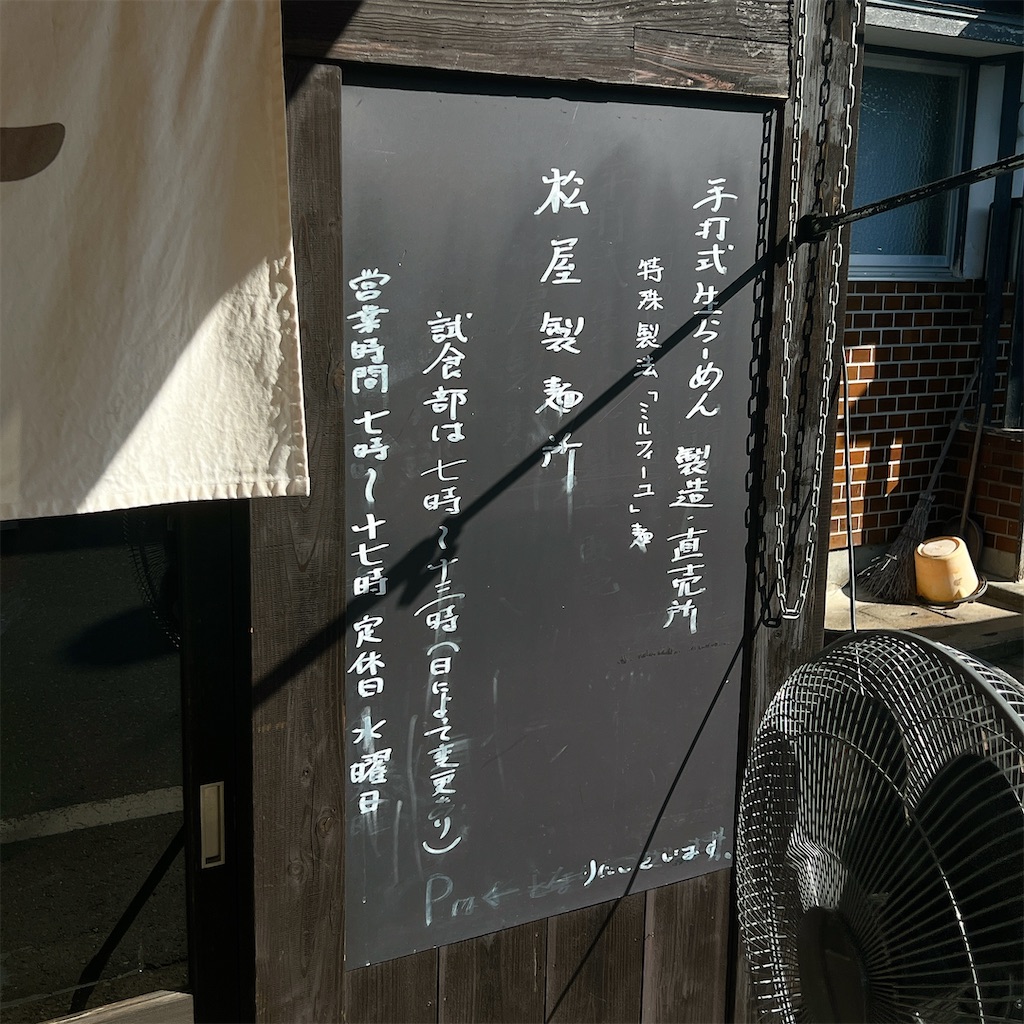 手打式 生らーめん 製造・直売所
特殊製法「ミルフィーユ」麺
松屋製麺所
試食部は七時〜十三時(日によって変更あり)
営業時間 七時〜十七時 定休日 水曜日
います。